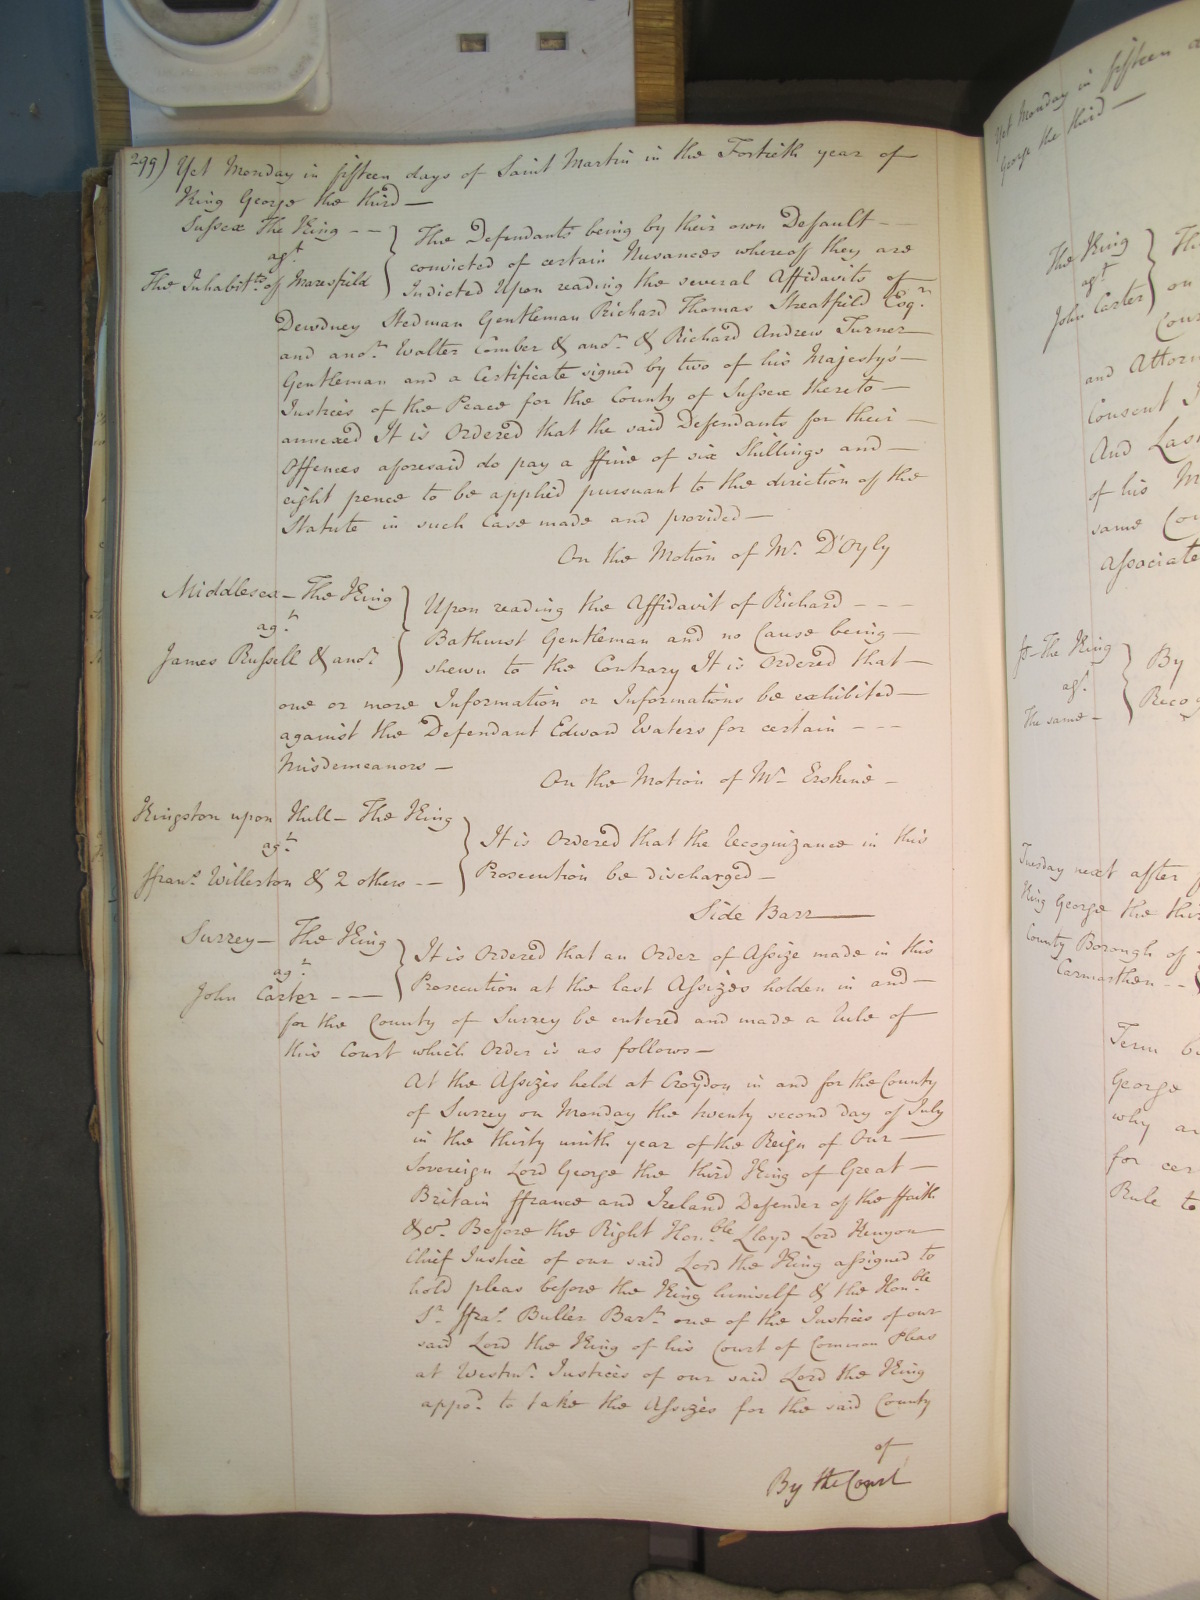 299) Yet Monday in fifteen days of Saint Martin in the Fortieth year of
King George the third—
Sussex The King -- The Defendants being by their own Default--
agt. convicted of certain Nusances whereof they are
The Inhabitts. of Maresfield Indicted Upon reading the several Affidavits of
Dewdney Stedman Gentleman Richard Thomas Streatfield Esqr.
and anor. Walter Comber & anor. & Richard Andrew Turner
Gentleman and a Certificate signed by two of his Majesty's—
Justices of the Peace for the County of Sussex thereto—
annexed It is Ordered that the said Defendants for their—
Offences aforesaid do pay a ffine of six Shillings and—
eight pence to be applied pursuant to the direction of the
Statute in such Case made and provided—
On the Motion of Mr. D'Oyly
Middlesex— The King Upon reading the Affidavit of Richard ---
agt. Bathurst Gentleman and no Cause being—
James Russell & anor. shewn to the Contrary It is Ordered that—
one or more Information or Informations be exhibited—
against the Defendant Edward Waters for certain ---
Misdemeanors—
On the Motion of Mr. Erskine—
Kingston upon Hull— The King It is Ordered that the Recognizance in this
agt.
ffrans. Willerton & 2 others -- Prosecution be discharged—
Side Barr—
Surrey— The King It is Ordered that an Order of Assize made in this
agt.
John Carter --— Prosecution at the last Assizes holden in and—
for the County of Surrey be entered and made a Rule of
this Court which Order is as follows—
At the Assizes held at Croydon in and for the County
of Surrey on Monday the twenty second day of July
in the thirty ninth year of the Reign of Our—
Sovereign Lord George the third King of Great—
Britain ffrance and Ireland Defender of the ffaith
&c. Before the Right Honble. Lloyd Lord Kenyon
Chief Justice of our said Lord the King assigned to
hold pleas before the King himself & the Honble.
Sr. ffras. Buller Bart. one of the Justices of our
said Lord the King of his Court of Common Pleas
at Westmr. Justices of our said Lord the King
appod. to take the Assizes for the said County
of
By the Court
Yet Monday in fifteen
George the third—
The King
agt.
John Carter
on
and Attorn
Consent
And Las
of his M
same Co
Associate
The King By
agt. Reco
The same—
Tuesday next after
King George the thi
County Borough of
Carmarthen --
Term b
George
why an
for cer
Rule to